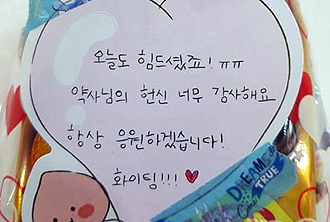 오늘도 힘드셨죠! ㅠㅠ
약사님의 헌신 너무 감사해요
항상 응원하겠습니다!
화이팅!!!
DREAM
TRUE